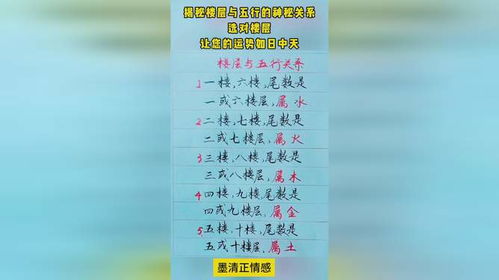 揭秘楼层与五行的神秘关系
选对楼层
让您的运势如日中天
楼层与五行关系
1一楼,六楼,尾数是
一或六楼层,属水
2二楼,七楼,尾数是
二或七楼层,属火
3三楼,八楼,尾数是
三或八楼层,属木
4四楼,九楼,尾数是
四或九楼层,属金
5五楼,十楼,尾数是
五或十楼层,属土
墨清正情感